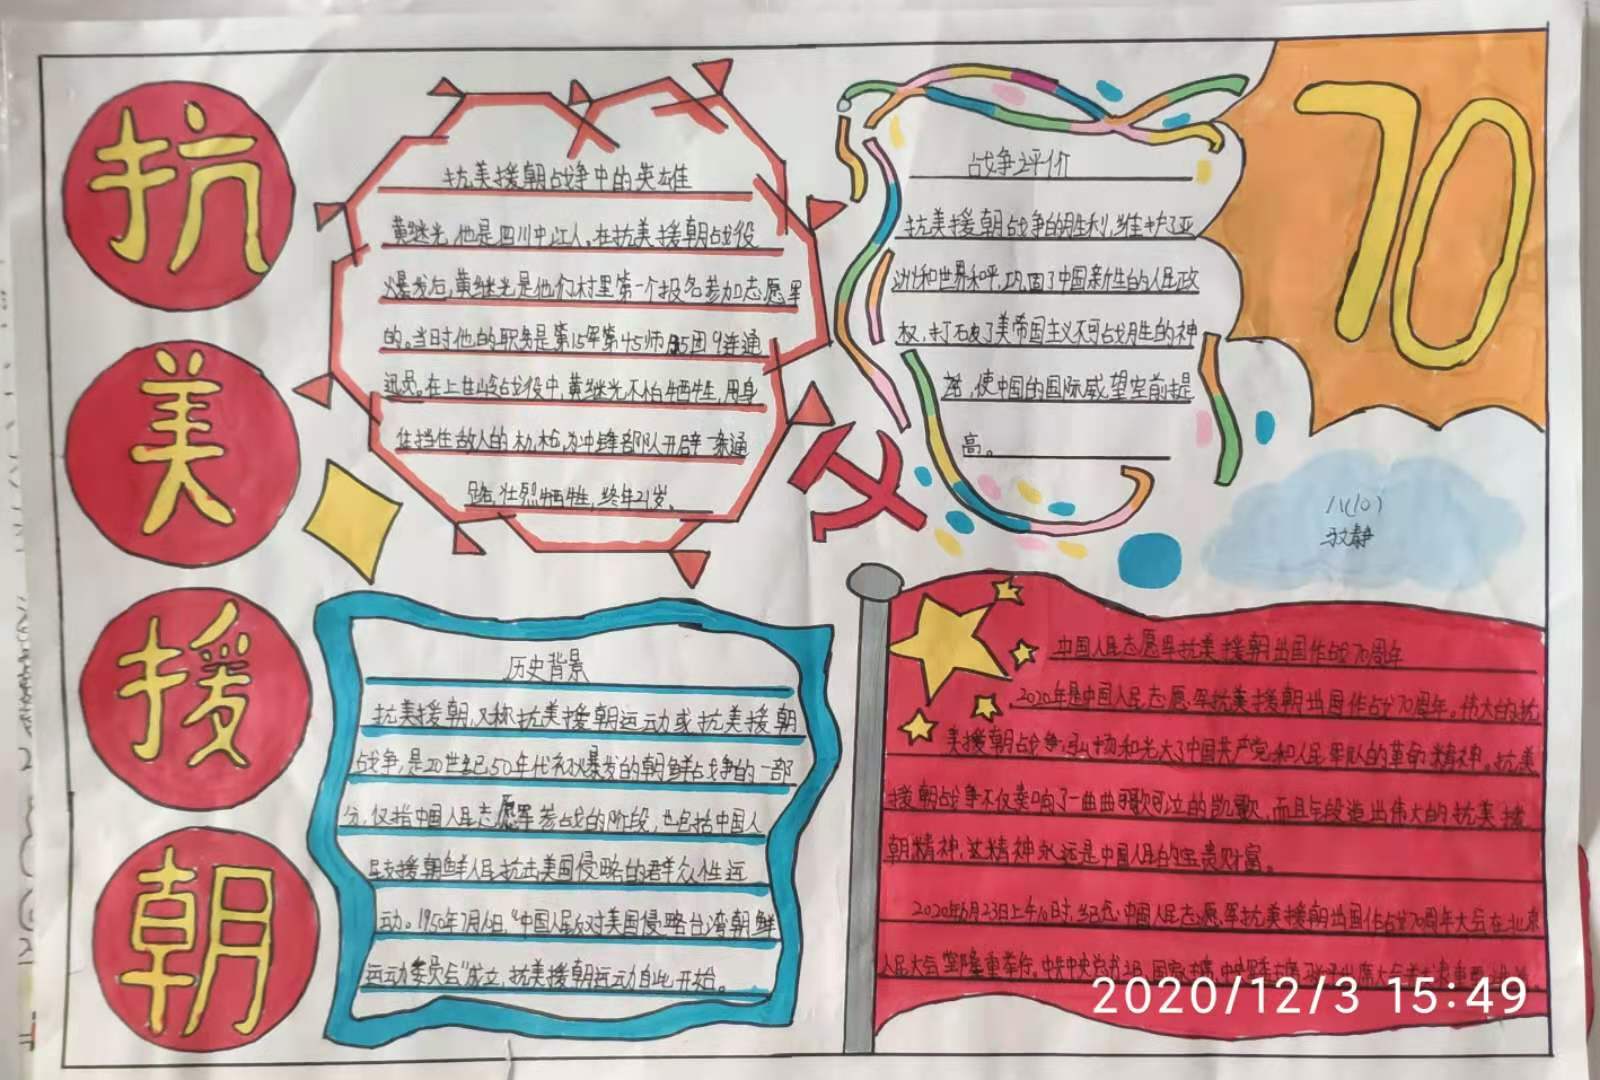 抗
美
援
朝
抗美援朝战争中的英雄
黄继光,他是四川中江人。在抗美援朝战役
爆发后,黄继光是他们村里第一个报名参加志愿军
的。当时他的职务是第15军第45师135团9连通
迅员。在上甘岭战役中,黄继光不怕牺牲,用身
住挡住敌人的机枪,为冲锋部队开辟一条通
路,壮烈牺牲,终年21岁。
战争评价
抗美援朝战争的胜利,维护了亚
洲和世界和平,巩固了中国新生的人民政
权,打破了美帝国主义不可战胜的神
话,使中国的国际威望空前提
高。
70
八(10)
静
历史背景
抗美援朝,又称抗美援朝运动或抗美援朝
战争,是20世纪50年代初爆发的朝鲜战争的一部
分,仅指中国人民志愿军参战的阶段,也包括中国人
民支援朝鲜人民抗击美国侵略的群众性运
动。1950年7月10日,“中国人民反对美国侵略台湾朝鲜
运动委员会”成立,抗美援朝运动自此开始。
中国人民志愿军抗美援朝出国作战70周年
2020年是中国人民志愿军抗美援朝出国作战70周年。伟大的抗
美援朝战争,弘扬和光大了中国共产党和人民军队的革命精神。抗美
援朝战争不仅奏响了一曲曲可歌可泣的凯歌,而且锻造出伟大的抗美援
朝精神,这精神永远是中国人民的宝贵财富。
2020年6月23日上午10时,纪念中国人民志愿军抗美援朝出国作战70周年大会在北京
人民大会堂隆重举行。中共中央总书记、国家主席、中央军委主席
2020/12/3 15:49